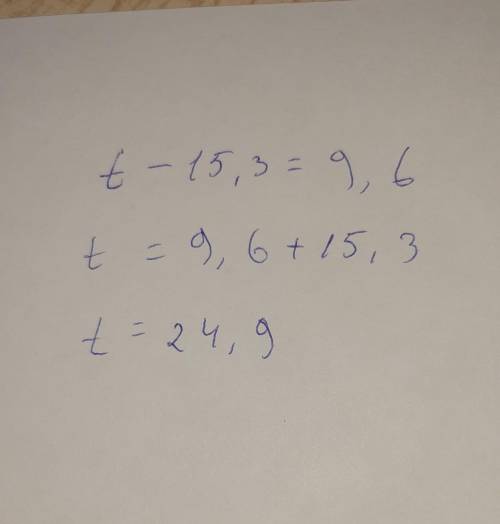 t - 15,3 = 9,6
t = 9,6 + 15,3
t = 24,9